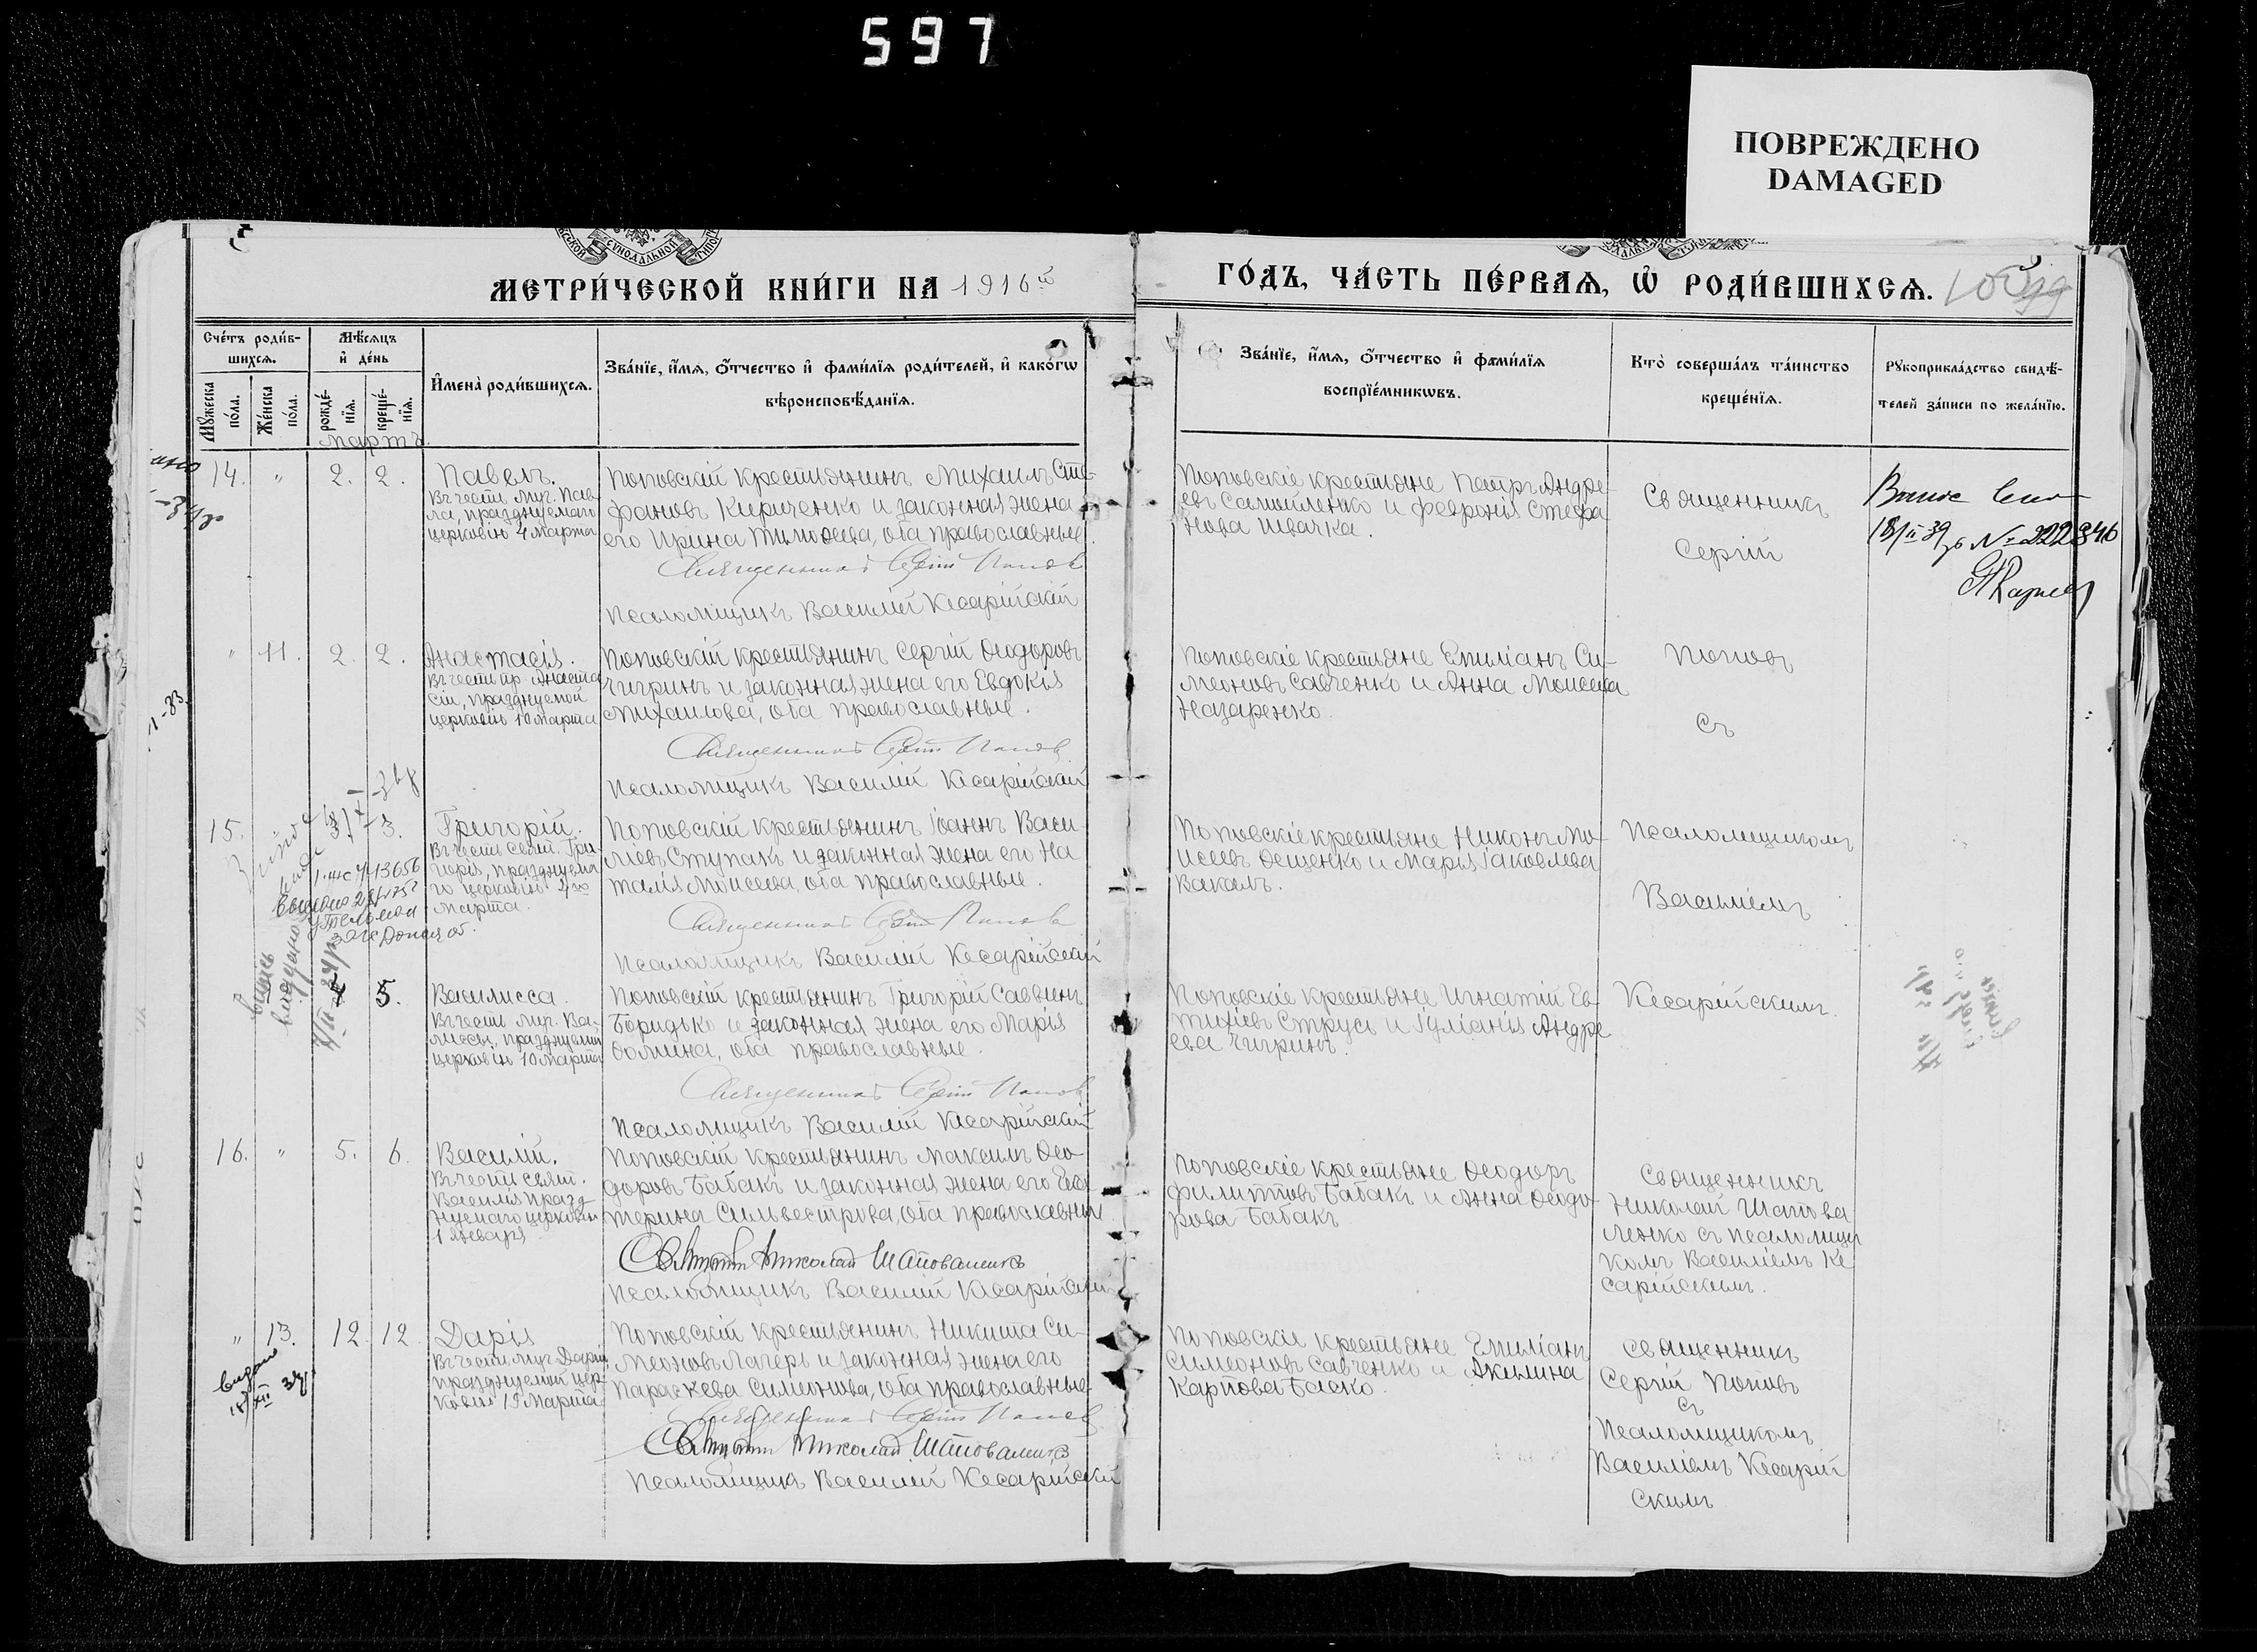 597
ПОВРЕЖДЕНО
DAMAGED
МЕТРИ́ЧЕСКОЙ КНИ́ГИ НА 1916й
ГО́ДЪ, ЧА́СТЬ ПЕ́РВАѦ, Ѡ РОДИ́ВШИХСѦ.
Сче́тъ роди́в-
шихсѧ.
Мѣ́сѧцъ
и҆ де́нь
Мꙋ́жеска по́ла.
Же́нска по́ла.
рожде́-
нїѧ.
креще́-
нїѧ.
И҆мена̀ роди́вшихсѧ.
Зва́нїе, и҆́мѧ, ѻ҆́тчество и҆ фами́лїѧ роди́телей, и҆ како́гѡ
вѣроисповѣ́данїѧ.
Зва́нїе, и҆́мѧ, ѻ҆́тчество и҆ фами́лїѧ
воспрїе́мникѡвъ.
Кто̀ соверша́лъ та́инство
креще́нїѧ.
Рꙋкоприкла́дство свидѣ́-
телей за́писи по жела́нїю.
Мартъ
14. " 2. 2.
Павелъ.
Въ честь муч. Пав-
ла, празднуемаго
церковію 4 Марта
Поповскій крестьянинъ Михаилъ Сте-
фановъ Кириченко и законная жена
его Ирина Тимоѳеева, оба православные.
Священникъ Сергій Поповъ
Псаломщикъ Василій Кесарійскій
Поповскіе крестьяне Петръ Андре-
евъ Самойленко и Февронія Стефа-
нова Швачка.
Священникъ
Сергій
18/II 39 № 222846
" 11. 2. 2.
Анастасія.
Въ честь пр. Анаста
сіи, празднуемой
церковію 10 Марта
Поповскій крестьянинъ Сергій Ѳеодоровъ
Чигринъ и законная жена его Евдокія
Михаилова, оба православные.
Священникъ Сергій Поповъ
Псаломщикъ Василій Кесарійскій
Поповскіе крестьяне Емиліанъ Си-
меоновъ Савченко и Анна Моисеева
Назаренко.
Поповъ
съ
15. 3.
Григорій.
Въ честь свят. Гри-
горія, празднуема
го церковію 4го
Марта.
Поповскій крестьянинъ Іоаннъ Васи-
ліевъ Ступакъ и законная жена его На
талія Моисеева, оба православные.
Священникъ Сергій Поповъ
Псаломщикъ Василій Кесарійскій
Поповскіе крестьяне Никонъ Мо-
исеевъ Ѳещенко и Марія Іаковлева
Вакалъ.
Псаломщикомъ
Василіемъ
5.
Василисса.
Въ честь муч. Ва-
лиссы, празднуемой
церковію 10 Марта
Поповскій крестьянинъ Григорій Саввинъ
Боридько и законная жена его Марія
Ѳомина, оба православные.
Священникъ Сергій Поповъ
Псаломщикъ Василій Кесарійскій
Поповскіе крестьяне Игнатій Ев-
тихіевъ Струсь и Іуліанія Андре
ева Чигринъ.
Кесарійскимъ.
16. " 5. 6.
Василій.
Въ честь свят.
Василія празд
нуемаго церковію
1 Января
Поповскій крестьянинъ Максимъ Ѳео-
доровъ Бабакъ и законная жена его Ека
терина Сильвестрова, оба православные
Священникъ Николай Шаповаленко
Псаломщикъ Василій Кесарійскій
Поповскіе крестьяне Ѳеодоръ
Филипповъ Бабакъ и Анна Ѳеодо-
рова Бабакъ
Священникъ
Николай Шапова
ленко съ псаломщи
комъ Василіемъ Ке
сарійскимъ.
" 13. 12. 12.
Дарія
Въ честь муч. Даріи
празднуемой цер-
ковію 19 Марта
Поповскій крестьянинъ Никита Си-
меоновъ Лагерь и законная жена его
Параскева Симеонова, оба православные
Священникъ Сергій Поповъ
Священникъ Николай Шаповаленко
Псаломщикъ Василій Кесарійскій
Поповскіе крестьяне Емиліанъ
Симеоновъ Савченко и Акилина
Карпова Баско.
Священникъ
Сергій Поповъ
съ
Псаломщикомъ
Василіемъ Кесарій
скимъ